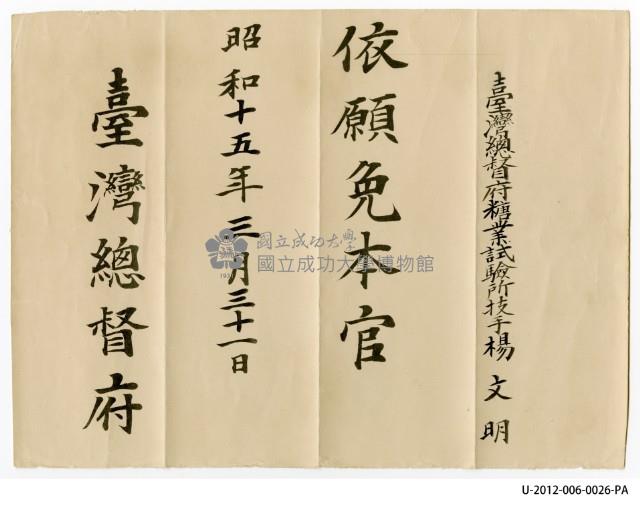 臺灣總督府糖業試驗所技手楊文明
依願免本官
昭和十五年三月三十一日
臺灣總督府
國立成功大學
國立成功大學博物館
U-2012-006-0026-PA